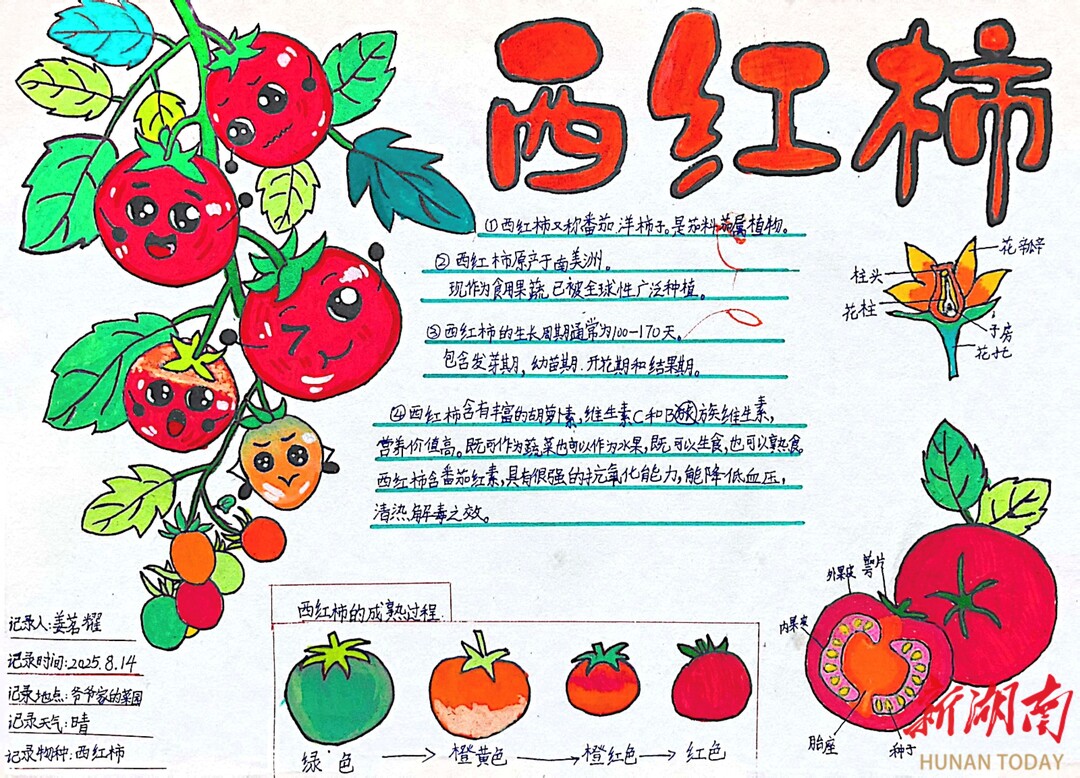 西红柿
①西红柿又称番茄 洋柿子。是茄科茄属植物。
②西红柿原产于南美洲。
现作为食用果蔬已被全球性广泛种植。
③西红柿的生长周期通常为100-170天。
包含发芽期,幼苗期.开花期和结果期。
④西红柿含有丰富的胡萝卜素,维生素C和B族维生素,
营养价值高。既可作为蔬菜也可以作为水果,既可以生食,也可以熟食。
西红柿含番茄红素,具有很强的抗氧化能力,能降低血压,
清热解毒之效。
花瓣
柱头
花柱
子房
花托
外果皮
萼片
内果皮
胎座
种子
西红柿的成熟过程
绿色
橙黄色
橙红色
红色
记录人:姜茗耀
记录时间:2025.8.14
记录地点:爷爷家的菜园
记录天气:晴
记录物种:西红柿
新湖南
HUNAN TODAY